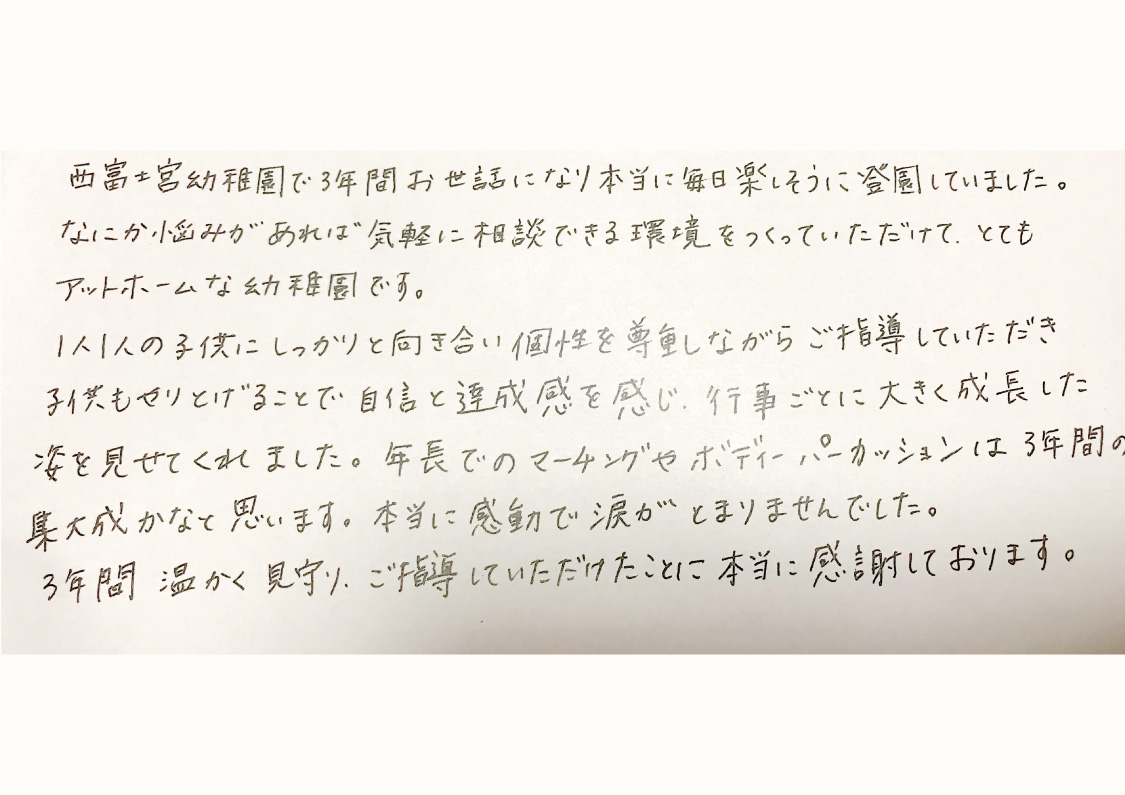 西富士宮幼稚園で3年間お世話になり本当に毎日楽しそうに登園していました。
なにか悩みがあれば気軽に相談できる環境をつくっていただけて、とても
アットホームな幼稚園です。
1人1人の子供にしっかりと向き合い個性を尊重しながらご指導していただき
子供もやりとげることで自信と達成感を感じ、行事ごとに大きく成長した
姿を見せてくれました。年長でのマーチングやボディーパーカッションは3年間の
集大成かなと思います。本当に感動で涙がとまりませんでした。
3年間温かく見守り、ご指導していただけたことに本当に感謝しております。